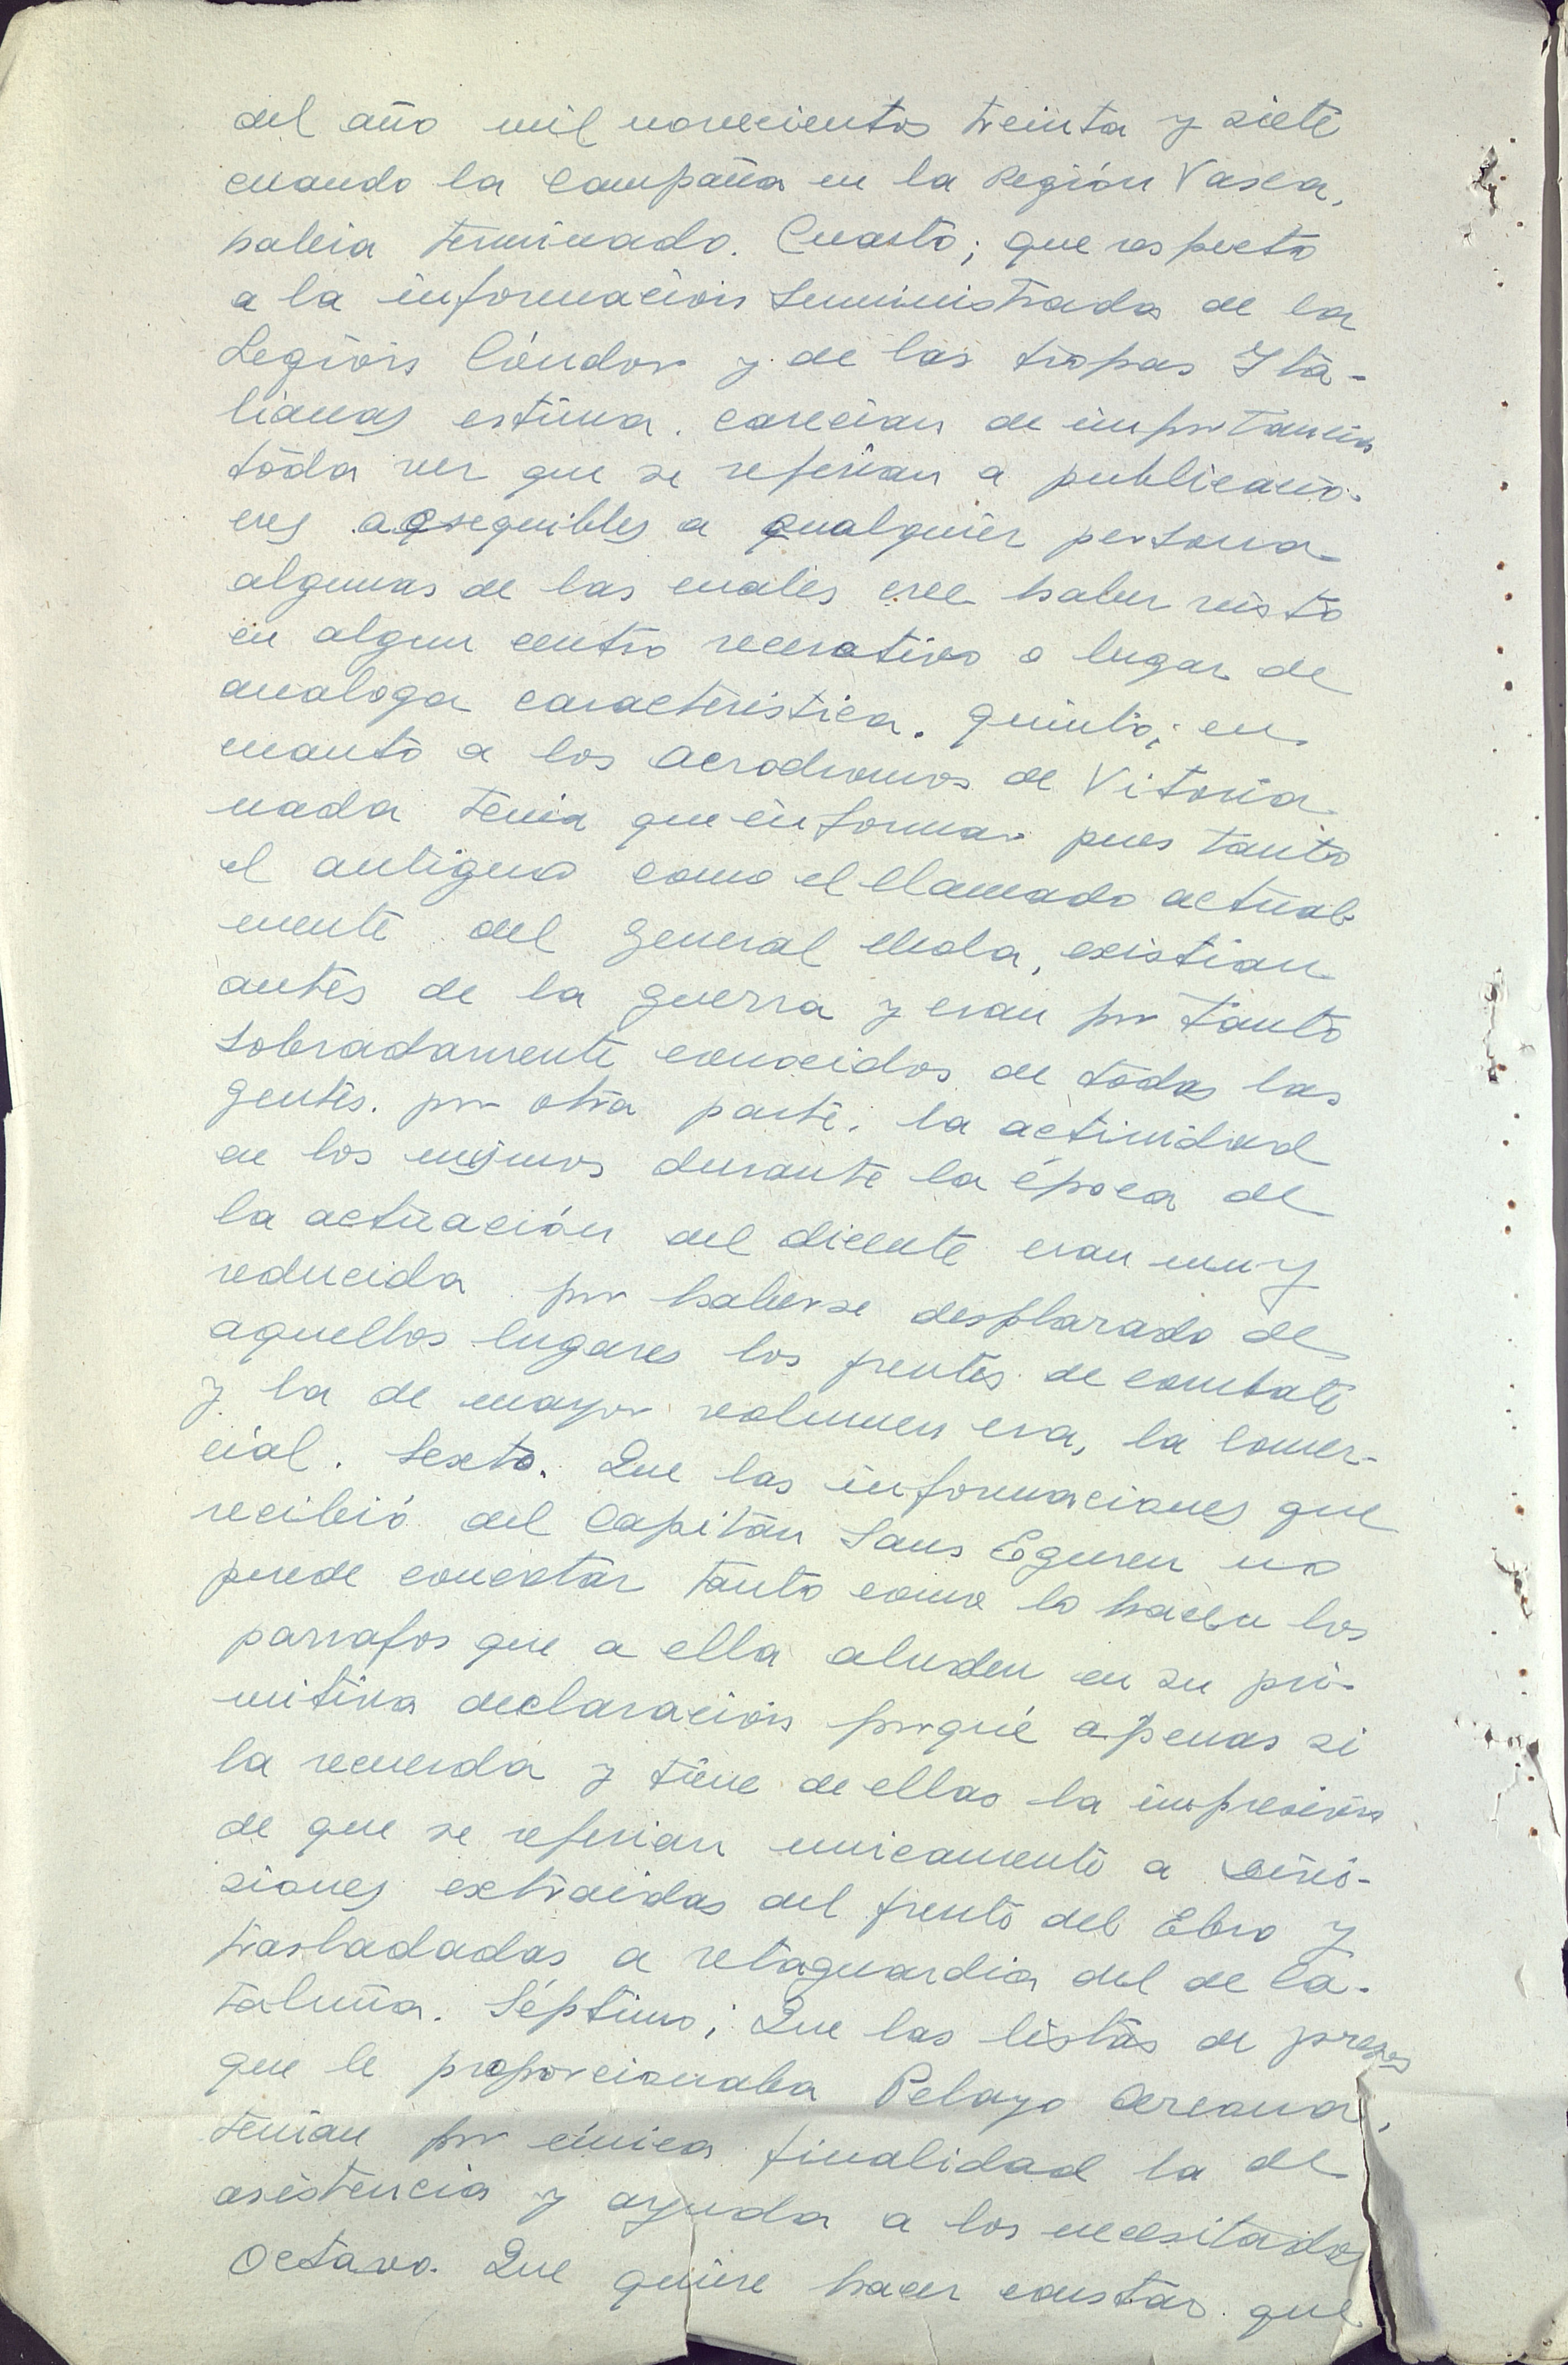 del año mil novecientos treinta y siete
cuando la Campaña en la Región Vasca,
habia terminado. Cuarto; que respecto
a la información suministrada de la
Legión Cóndor y de las tropas Ita-
lianas estima. carecian de importancia
toda vez que se referian a publicacio-
nes aqsequibles a qualquier persona
algunas de las cuales cree haber visto
en algun centro recreativo o lugar de
analoga caracteristica. quinto; en
cuanto a los aerodromos de Vitoria
nada tenia que informar pues tanto
el antiguo como el llamado actual-
mente del General Mola, existian
antes de la guerra y eran por tanto
sobradamente conocidos de todas las
gentes. por otra parte. la actividad
de los mismos durante la época de
la actuación del dicente eran muy
reducida por haberse desplazado de
aquellos lugares los frentes de combate
y la de mayor volumen era, la comer-
cial. Sexto. Que las informaciones que
recibió del Capitán Sans Eguren no
puede concretar tanto como lo hacen los
parrafos que a ella aluden en su pri-
mitiva declaración porqué apenas si
la recuerda y tiene de ellas la impresión
de que se referian unicamente a divi-
siones extraidas del frente del Ebro y
trasladadas a retaguardia del de Ca-
taluña. Séptimo; Que las listas de presos
que le proporcionaba Pelayo Arcana,
tenian por única finalidad la de
asistencia y ayuda a los necesitados
Octavo. Que quiere hacer constar que